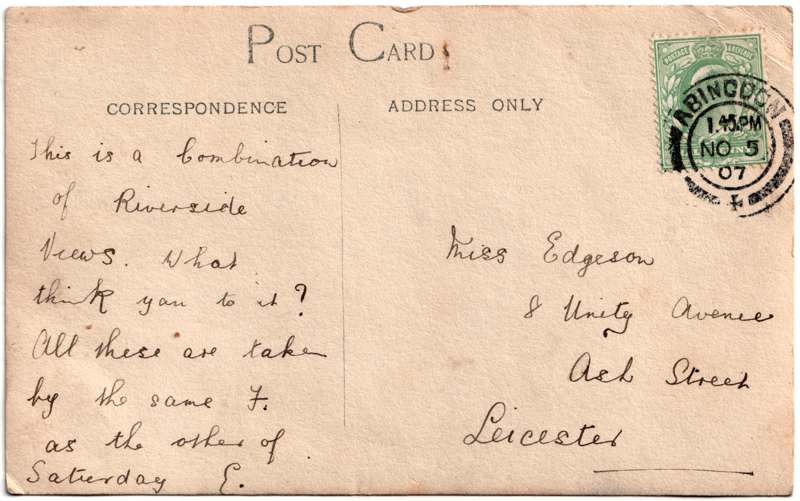 POST CARD
CORRESPONDENCE
ADDRESS ONLY
POSTAGE REVENUE
ABINGDON
1.45PM
NO 5
07
This is a Combination
of Riverside
Views. What
think you to it?
All these are taken
by the same F.
as the other of
Saturday E.
Miss Edgeson
8 Unity Avenue
Ash Street
Leicester